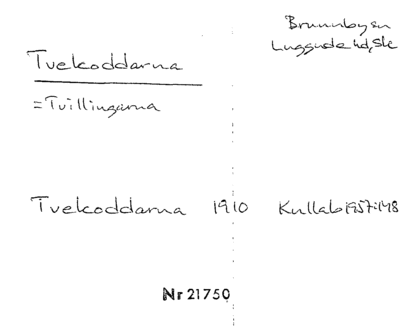 Brunnby sn
Luggude hd, Sk
Tvekoddarna
=Tvillingarna
Tvekoddarna 1910 Kullab 1957:148
Nr 21750